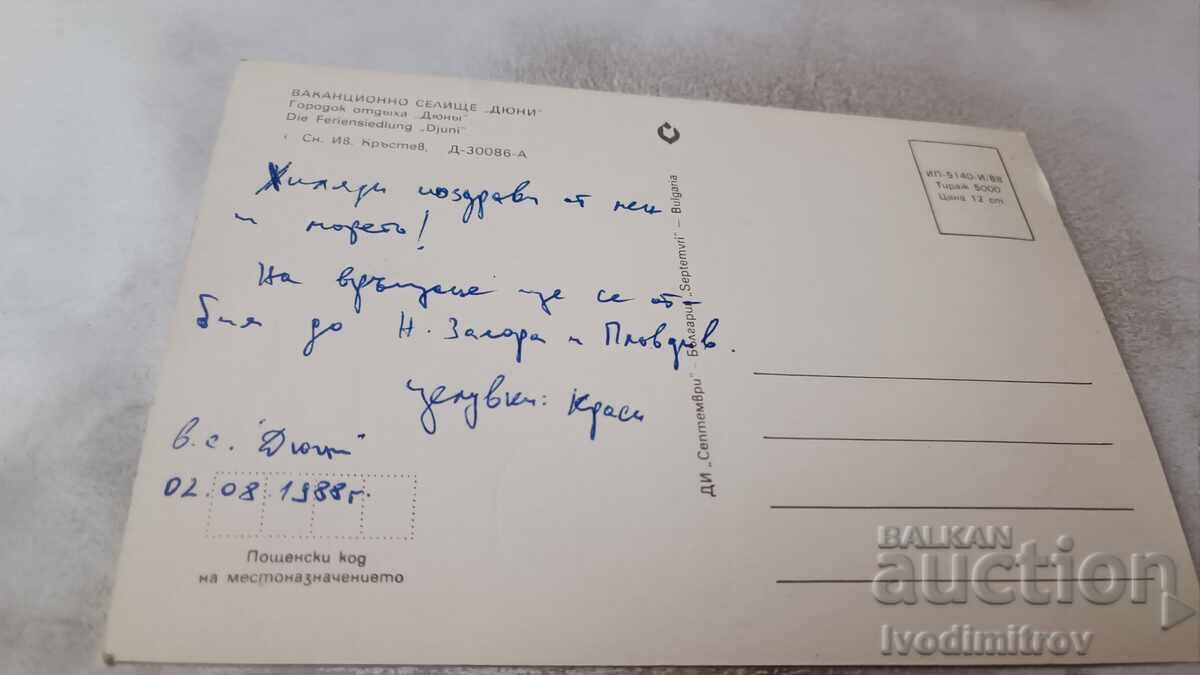 ВАКАНЦИОННО СЕЛИЩЕ „ДЮНИ"
Городок отдыха „Дюны"
Die Feriensiedlung „Djuni"
Сн. Ив. Кръстев, Д-30086-А
Хиляди поздрави от мен
и морето!
На връщане ще се от-
бия до Н. Загора и Пловдив.
Целувки: Краси
в.с. "Дюни"
02.08.1988г.
Пощенски код
на местоназначението
ДИ „Септември" — България „Septemvri" — Bulgaria
ИП-5140-И/88
Тираж 5000
Цена 12 ст
BALKAN
auction
Ivodimitrov